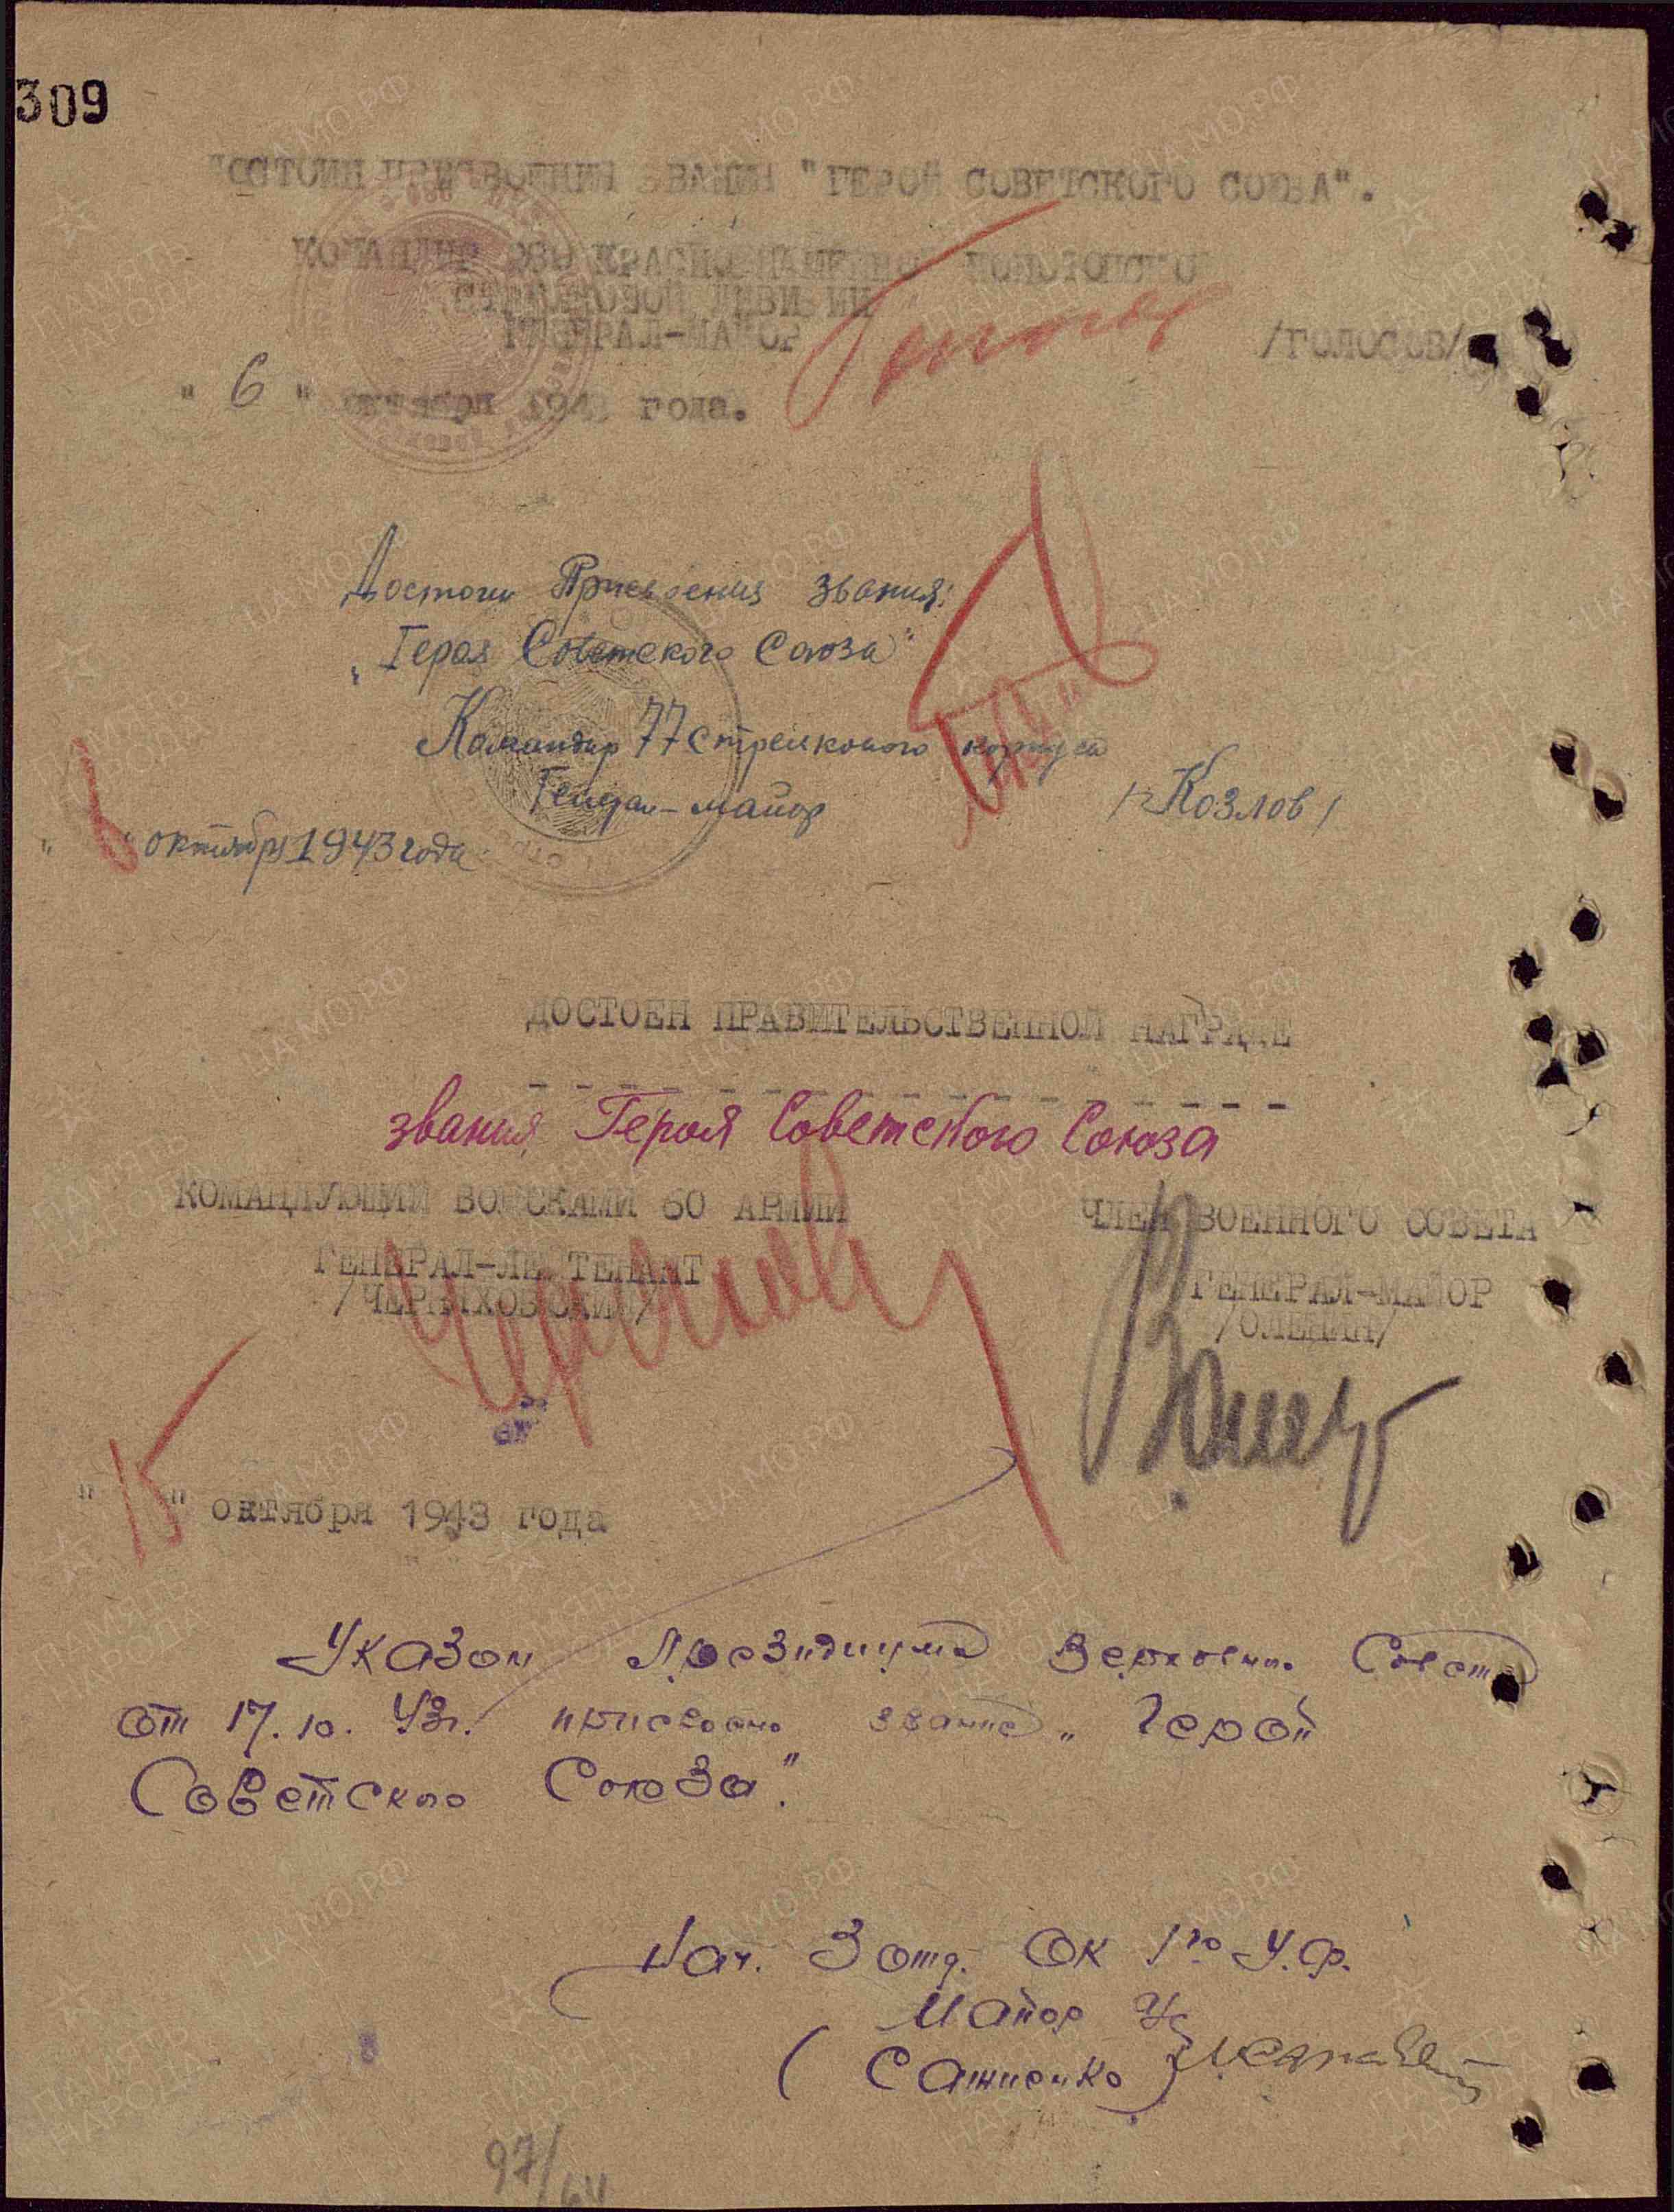 309
ДОСТОИН ПРИСВОЕНИЯ ЗВАНИЯ "ГЕРОЙ СОВЕТСКОГО СОЮЗА".
КОМАНДИР КРАСНОЗНАМЕННОЙ
СТРЕЛКОВОЙ ДИВИЗИИ
ГЕНЕРАЛ-МАЙОР /ГОЛОСОВ/
" 6 " октября 1943 года.
Достоин Присвоения звания:
„Героя Советского Союза"
Командир 77 стрелкового корпуса
Генерал-майор /Козлов/
" " октября 1943 года
ДОСТОЕН ПРАВИТЕЛЬСТВЕННОЙ НАГРАДЫ
звания Героя Советского Союза
КОМАНДУЮЩИЙ ВОЙСКАМИ 60 АРМИИ ЧЛЕН ВОЕННОГО СОВЕТА
ГЕНЕРАЛ-ЛЕЙТЕНАНТ ГЕНЕРАЛ-МАЙОР
/ЧЕРНЯХОВСКИЙ/ /ОЛЕНИН/
" 15 " октября 1943 года
Указом Президиума Верховного Совета
от 17.10.43г. присвоено звание „Герой
Советского Союза".
Нач. 3 отд. ОК 1го У.Ф.
Майор
97/
ПАМЯТЬ НАРОДА
ЦАМО.РФ